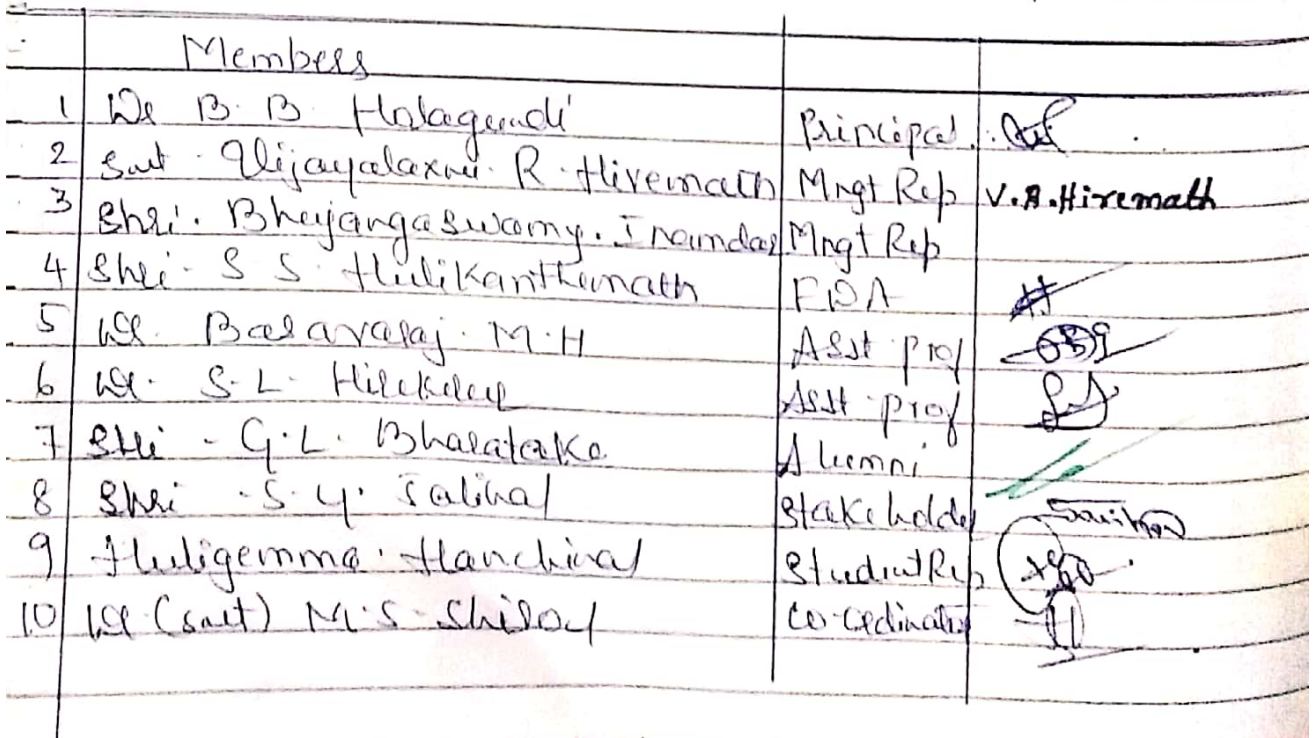 Members
1 Dr B. B. Halagundi Principal
2 Smt. Vijayalaxmi. R. Hiremath Mngt Rep V.R.Hiremath
3 Shri. Bhujangaswamy. Inamdar Mngt Rep
4 Shri. S S. Hulikanthimath FDA
5 Dr. Basavaraj. M.H Asst prof
6 Dr. S.L. Asst prof
7 Shri. G.L. Alumni
8 Shri. S.Y. Stakeholder
9 Huligemma. Hanchinal Student Rep
10 Dr (Smt) M.S. Co-ordinator